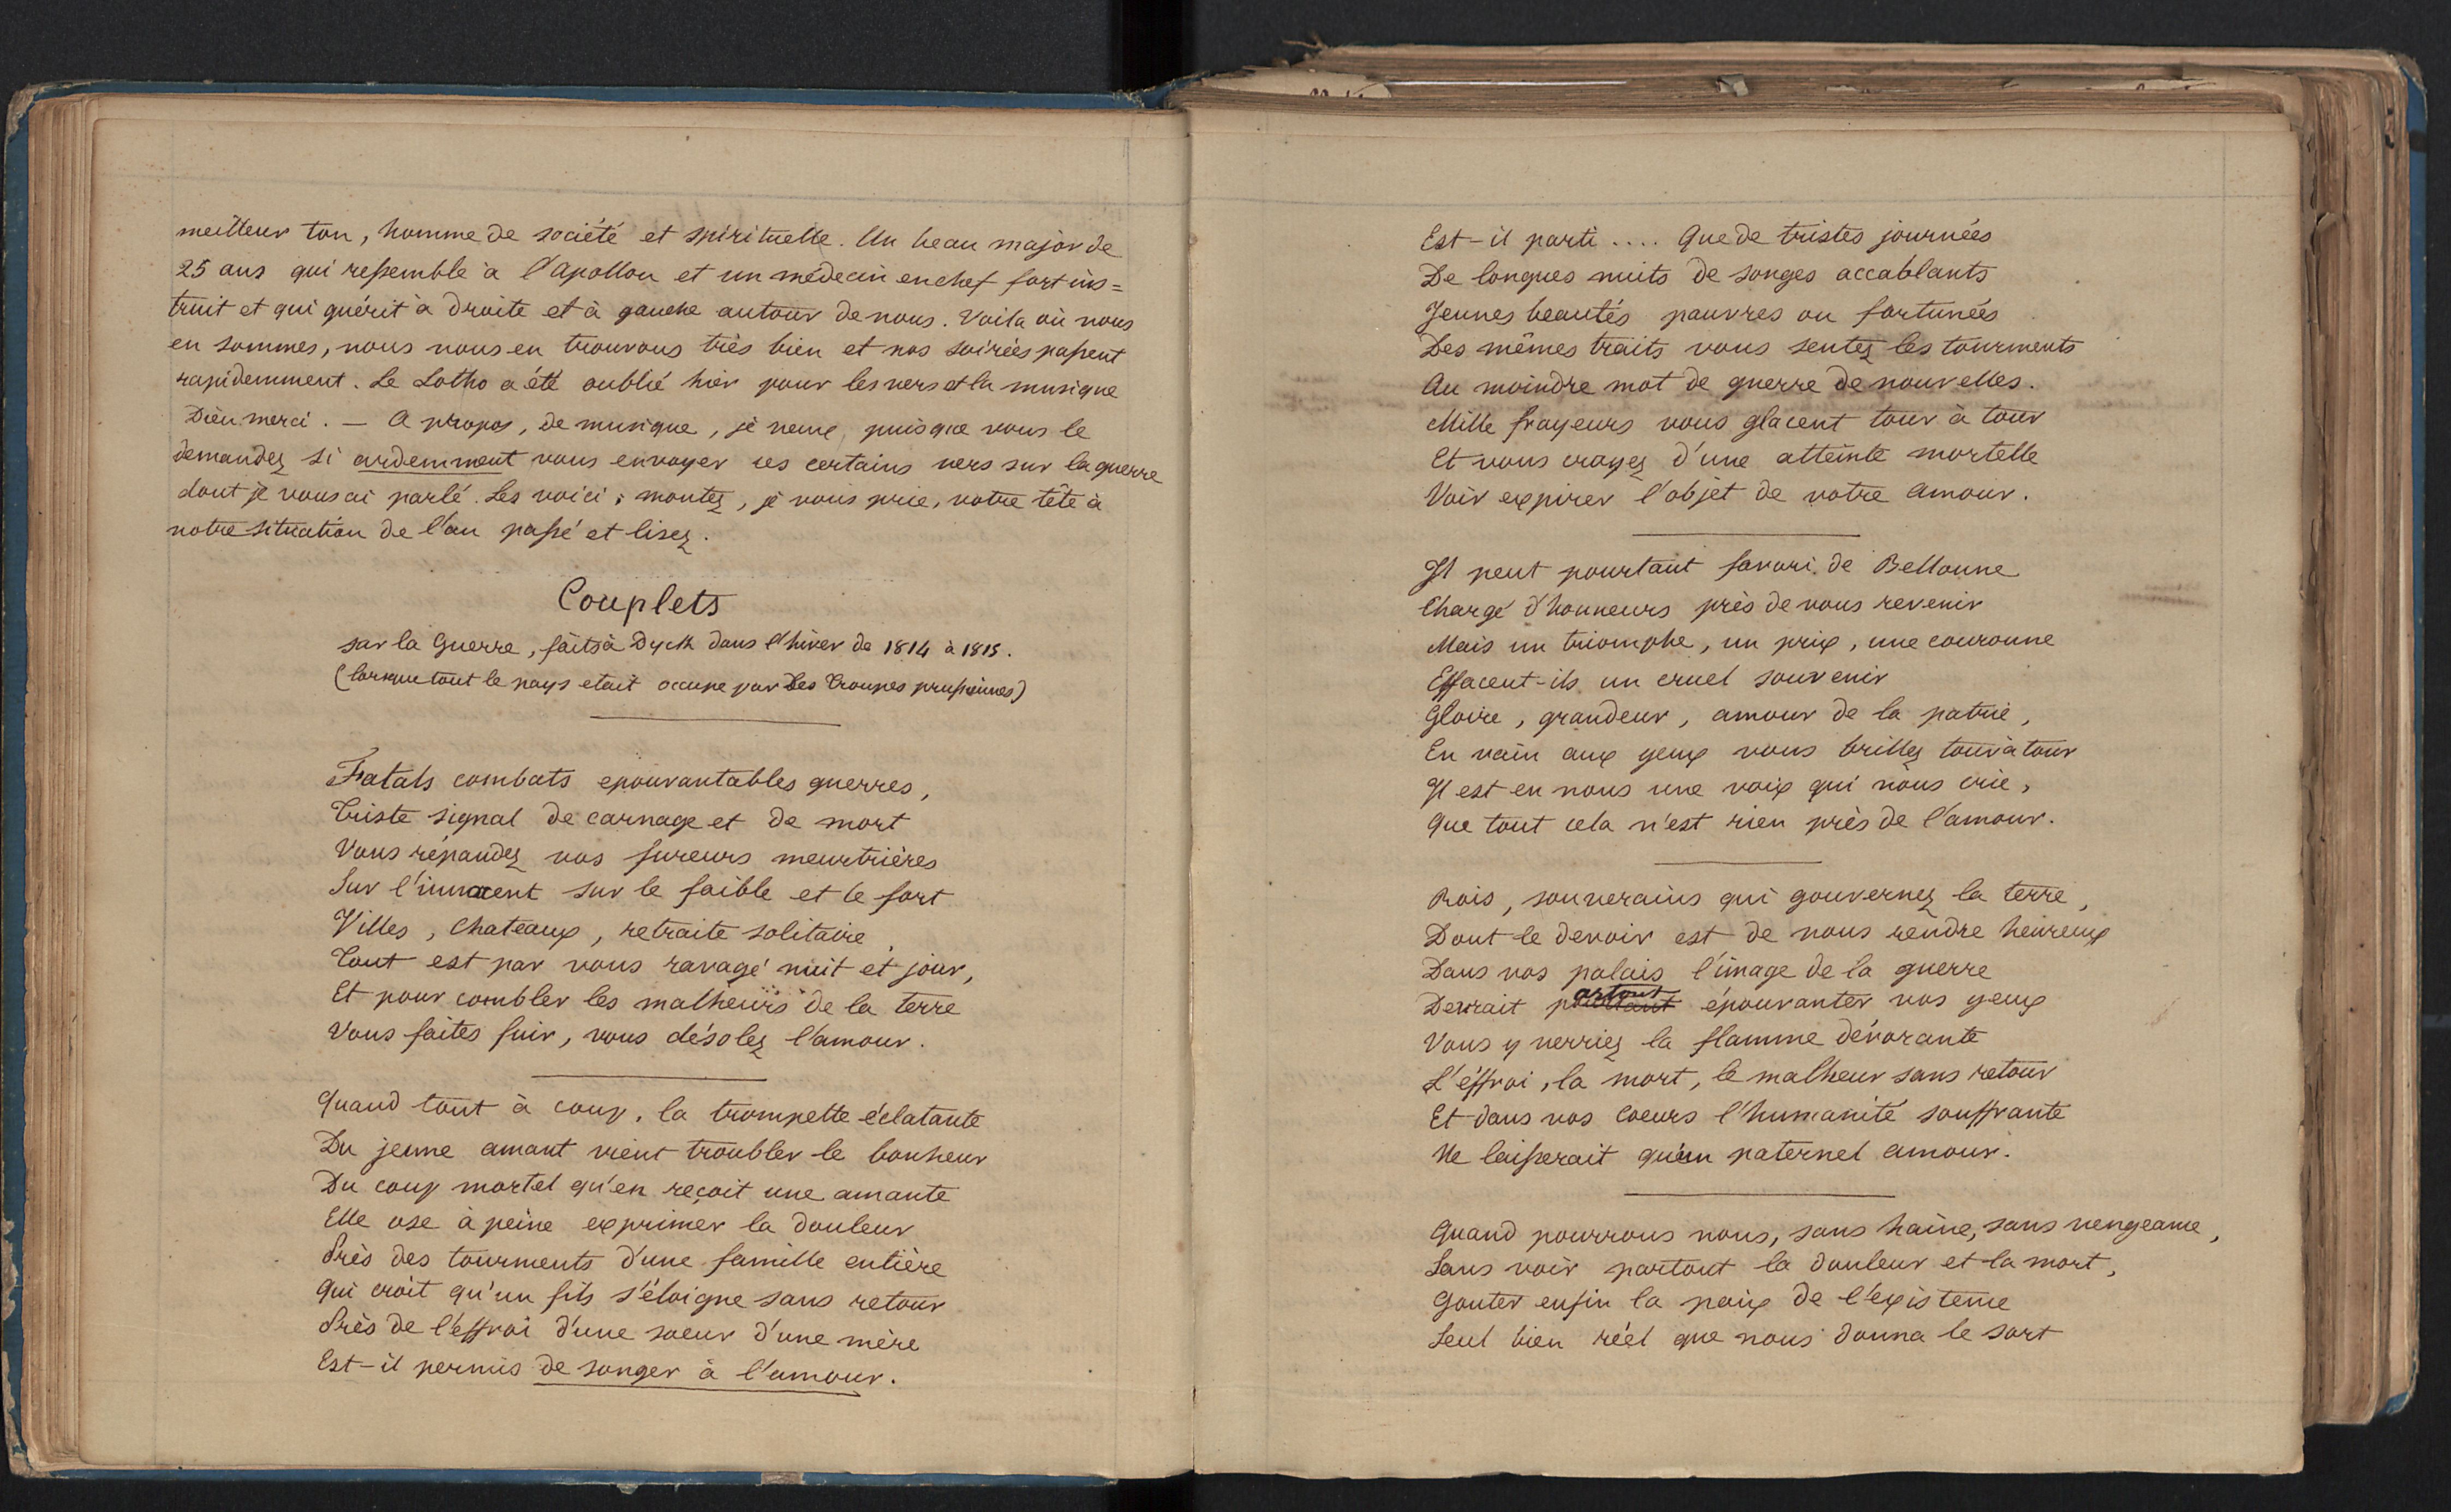 meilleur ton, homme de société et spirituelle. Un beau major de
25 ans qui ressemble à l'Apollon et un médecin en chef fort ins=
truit et qui guérit à droite et à gauche autour de nous. Voila où nous
en sommes, nous nous en trouvons très bien et nos soirées passent
rapidemment. Le Lotho a été oublié hier pour les vers et la musique
Dieu merci. — A propos, de musique, je veux, puisque vous le
demandez si ardemment vous envoyer ces certains vers sur la guerre
dont je vous ai parlé. Les voici; montez, je vous prie, votre tête à
notre situation de l'an passé et lisez.
Couplets
sur la Guerre, faits à Dyck dans l'hiver de 1814 à 1815.
(lorsque tout le pays etait occupe par des troupes prussiennes)
Fatals combats epouvantables guerres,
Triste signal de carnage et de mort
Vous répandez vos fureurs meurtrières
Sur l'innocent sur le faible et le fort
Villes, Chateaux, retraite solitaire,
Tout est par vous ravagé nuit et jour,
Et pour combler les malheurs de la terre
Vous faites fuir, vous désolez l'amour.
Quand tout à coup, la trompette éclatante
Du jeune amant vient troubler le bonheur
Du coup mortel qu'en reçoit une amante
Elle ose à peine exprimer la douleur
Près des tourments d'une famille entière
Qui croit qu'un fils s'éloigne sans retour
Près de l'effroi d'une soeur d'une mère
Est-il permis de songer à l'amour.
Est-il parti .... Que de tristes journées
De longues nuits de songes accablants
Jeunes beautés pauvres ou fortunées
Des mêmes traits vous sentez les tourments
Au moindre mot de guerre de nouvelles.
Mille frayeurs vous glacent tour à tour
Et vous croyez d'une atteinte mortelle
Voir expirer l'objet de votre amour.
Il peut pourtant favori de Bellonne
Chargé d'honneurs près de vous revenir
Mais un triomphe, un prix, une couronne
Effacent-ils un cruel souvenir
Gloire, grandeur, amour de la patrie,
En vain aux yeux vous brillez tour à tour
Il est en nous une voix qui nous crie,
Que tout cela n'est rien près de l'amour.
Rois, souverains qui gouvernez la terre,
Dont le devoir est de nous rendre heureux
Dans vos palais l'image de la guerre
Devrait partout épouvanter vos yeux
Vous y verriez la flamme dévorante
L'éffroi, la mort, le malheur sans retour
Et dans vos coeurs l'humanité souffrante
Ne laisserait qu'un paternel amour.
Quand pourrons nous, sans haine, sans vengeance,
Sans voir partout la douleur et la mort,
Gouter enfin la paix de l'existence
Seul bien réel que nous donna le sort